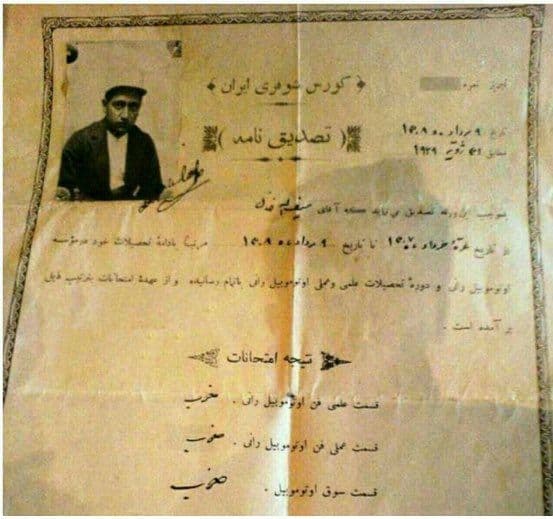 کورس شوفری ایران
نمره
( تصدیق نامه )
تاریخ ۹ مرداد ۱۳۰۸
مطابق ۳۱ ژویه ۱۹۲۹
بموجب این ورقه تصدیق می نماید که آقای
از تاریخ خرداد ۱۳۰۷ تا تاریخ ۹ مرداد ۱۳۰۸ مرتباً بادامه تحصیلات خود در مؤسسه
اوتوموبیل رانی و دورۀ تحصیلات علمی و عملی اوتوموبیل رانی باتمام رسانیده و از عهدۀ امتحانات بترتیب ذیل
بر آمده است .
نتیجه امتحانات
قسمت علمی فن اوتوموبیل رانی . خوب
قسمت عملی فن اوتوموبیل رانی . خوب
قسمت سوق اوتوموبیل . خوب